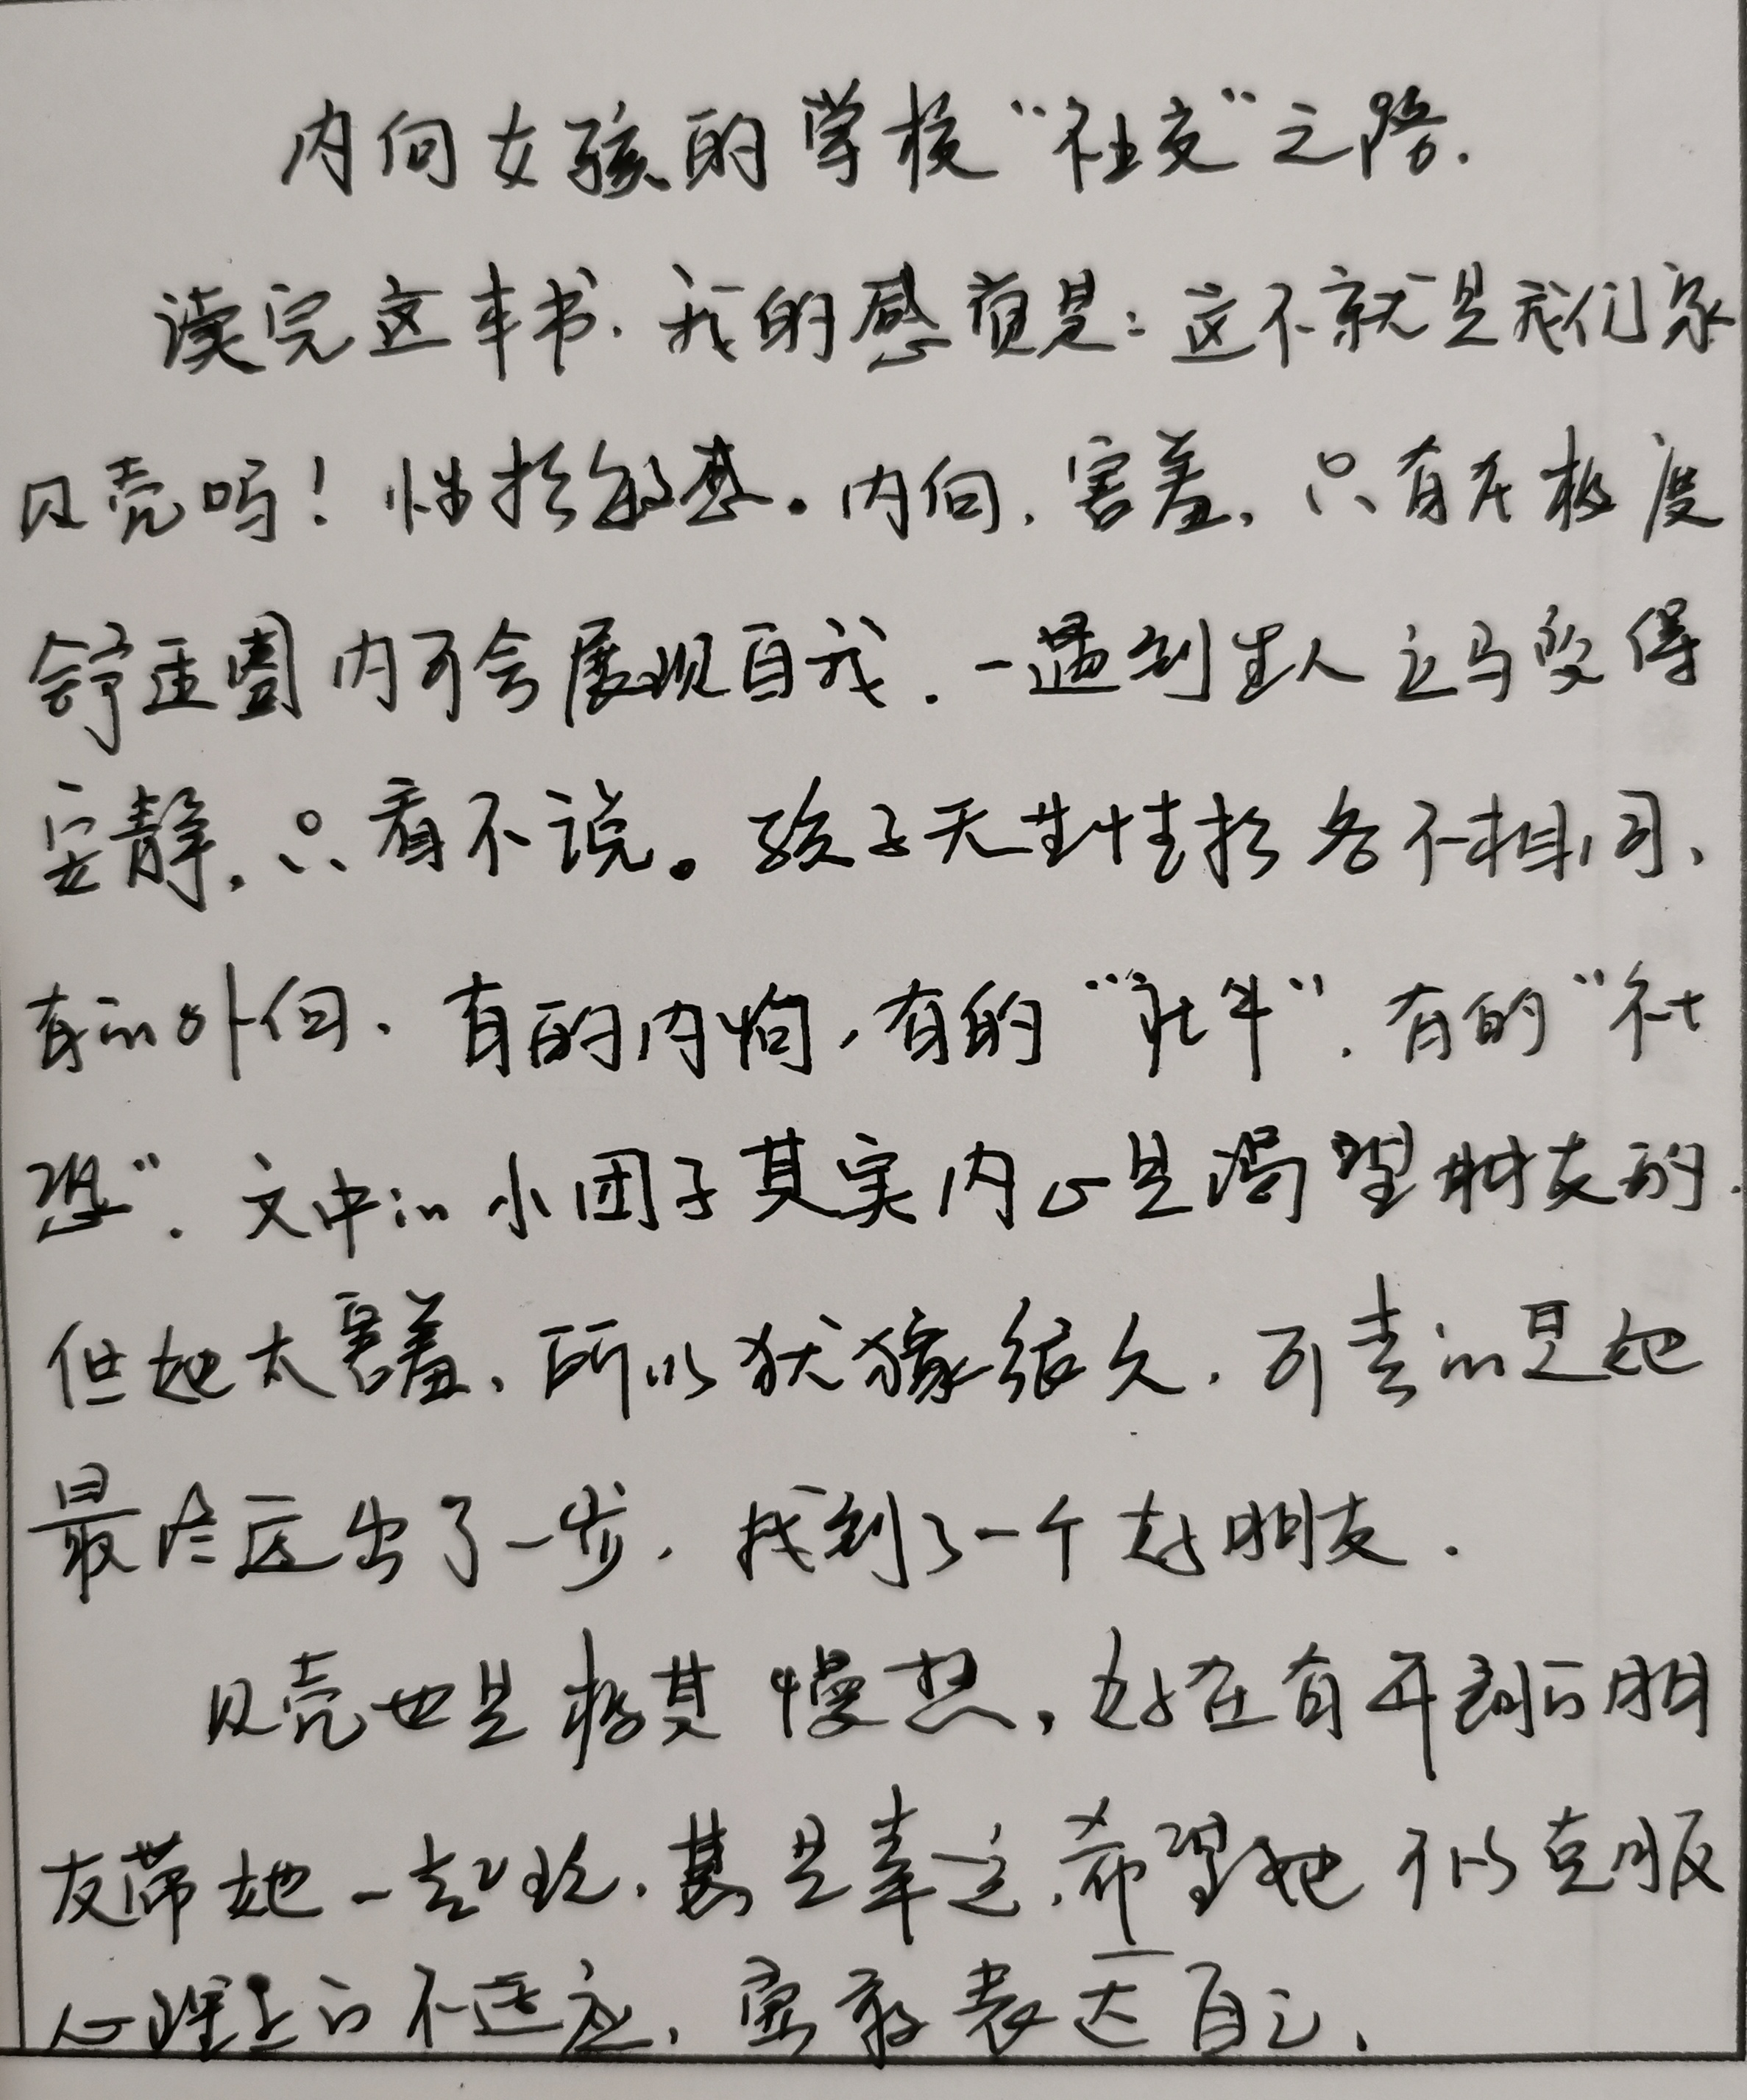 内向女孩的学校“社交”之路.
读完这本书.我的感觉是:这不就是我们家
贝壳吗!性格敏感。内向,害羞,只有在极度
舒适圈内才会展现自我.一遇到生人立马变得
安静,只看不说。孩子天生性格各不相同、
有的外向、有的内向,有的“社牛”.有的“社
恐”.文中的小团子其实内心是渴望朋友的.
但她太害羞,所以犹豫很久,可喜的是她
最终迈出了一步,找到了一个好朋友.
贝壳也是极其慢热,好在有开朗的朋
友带她一起玩,甚是幸运,希望她可以克服
心理上的不适应,勇敢表达自己.